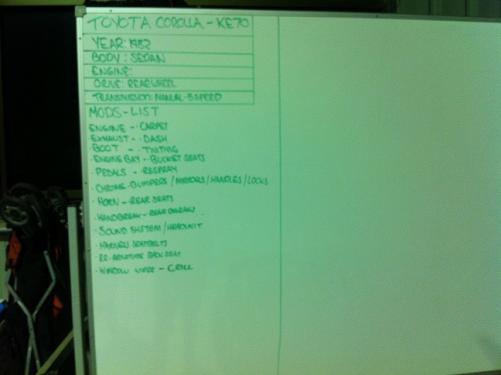 TOYOTA COROLLA - KE70
YEAR: 1982
BODY: SEDAN
ENGINE:
DRIVE: REARWHEEL
TRANSMISSION: MANUAL - 5 SPEED
MODS - LIST
ENGINE - · CARPET
EXHAUST - · DASH
BOOT - · TINTING
· ENGINE BAY - · BUCKET SEATS
· PEDALS - · RESPRAY
· CHROME - BUMPERS / MIRRORS / HANDLES / LOCKS
· HORN - REAR SEATS
· HANDBREAK - REAR
· SOUND SYSTEM / HEADUNIT
· HARNESS SEATBELTS
BACK SEAT
· WINDOW - GRILL